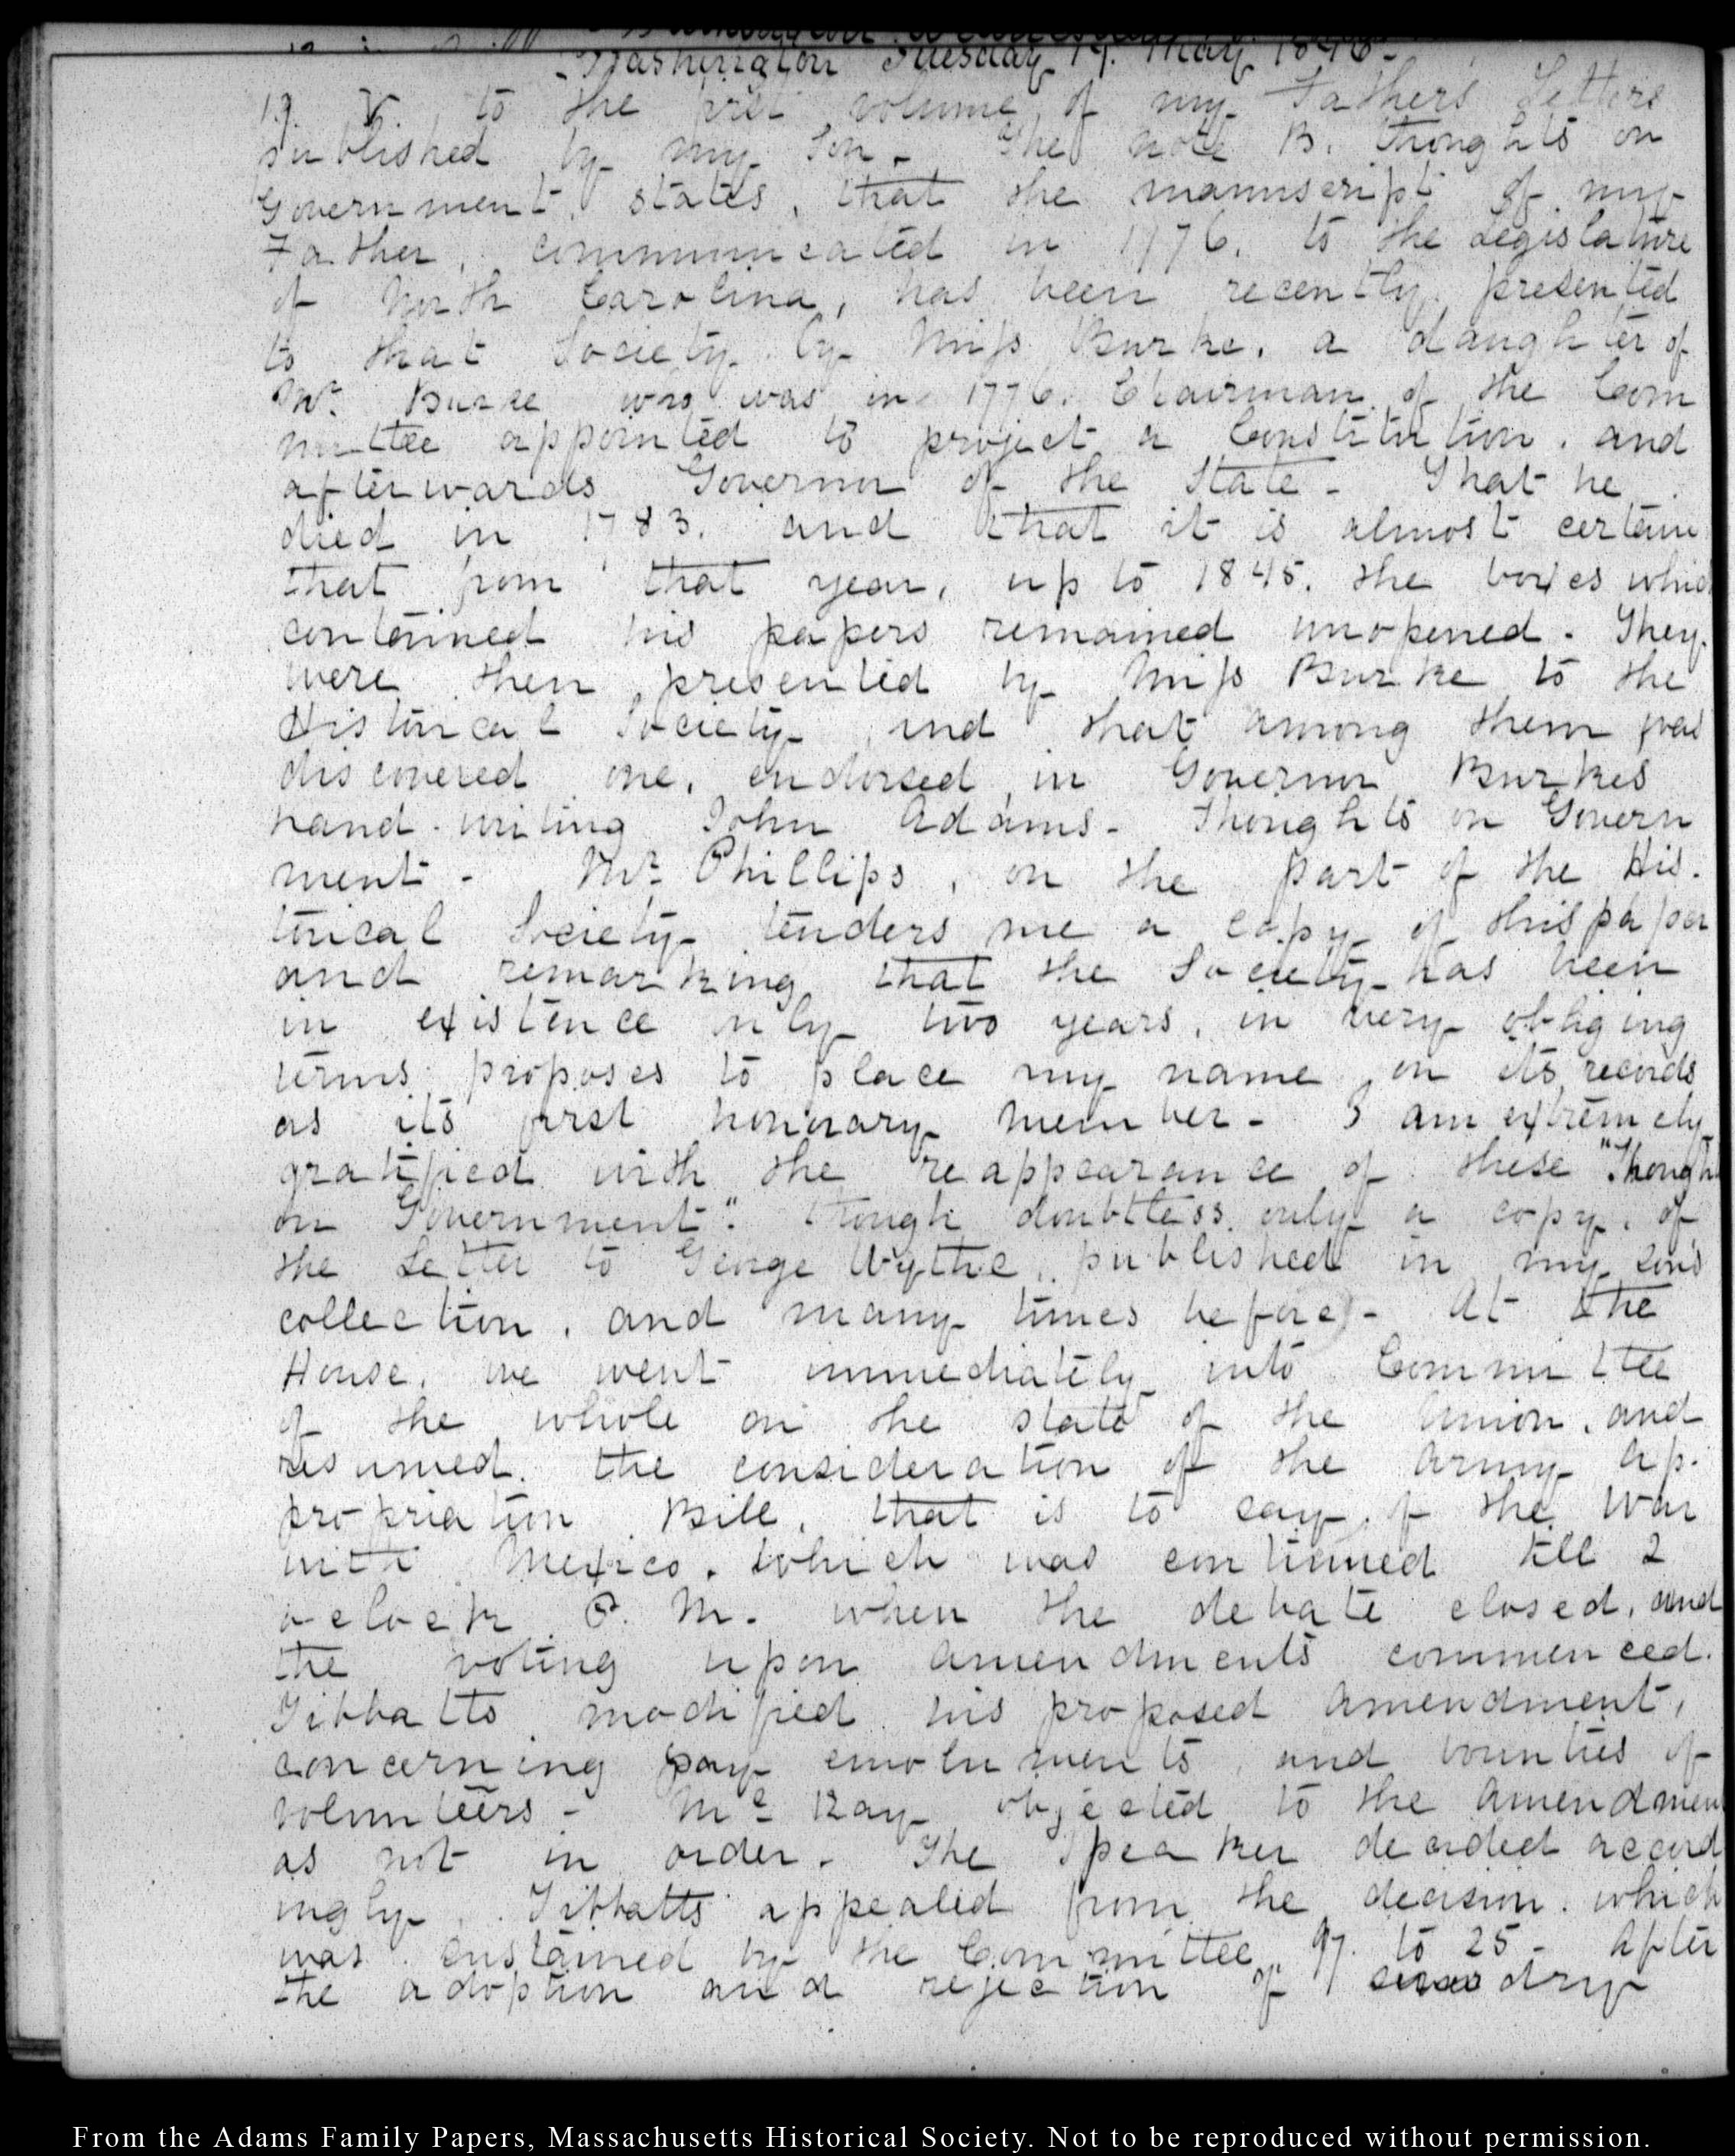 Washington Tuesday 19. May 1846.
19. V. to the first volume of my Fathers Letters
published by my Son. The note B. thoughts on
Government, states, that the manuscript of my
Father, communicated in 1776. to the Legislature
of North Carolina, has been recently presented
to that Society by Miss Burke, a daughter of
Mr. Burke who was in 1776. Chairman of the Com
mittee appointed to project a Constitution. and
afterwards Governor of the State - That he
died in 1783. and that it is almost certain
that from that year, up to 1845. the boxes which
contained his papers remained unopened. They
were then presented by Miss Burke to the
Historical Society and that among them was
discovered one, endorsed in Governor Burkes
hand-writing John Adams - Thoughts on Govern
ment - Mr. Phillips, on the part of the His-
torical Society tenders me a copy of this paper
and remarking that the Society has been
in existence only two years, in very obliging
terms proposes to place my name on its records
as its first honorary member - I am extremely
gratified with the reappearance of these "Thoughts
on Government" though doubtless only a copy, of
the Letter to George Wythe, published in my sons
collection, and many times before) - At the
House, we went immediately into Committee
of the whole on the state of the Union, and
resumed the consideration of the Army Ap-
propriation Bill, that is to say, of the War
with Mexico. which was continued till 2
o clock P. M. when the debate closed, and
the voting upon amendments commenced.
Tibbatts modified his proposed amendment,
concerning pay emoluments, and bounties of
volunteers - McKay objected to the amendment
as not in order. The Speaker decided accord
ingly. Tibbatts appealed from the decision. which
was sustained by the Committee 97. to 25 - After
the adoption and rejection of sundry
From the Adams Family Papers, Massachusetts Historical Society. Not to be reproduced without permission.